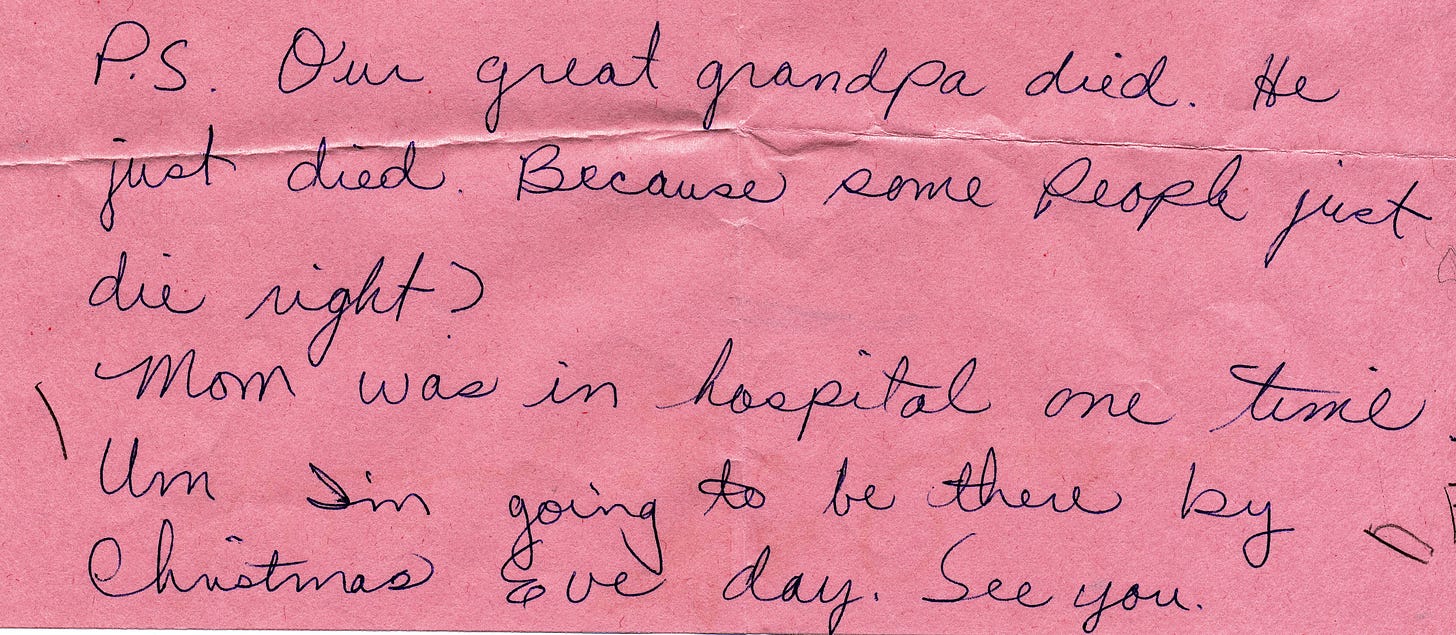 P.S. Our great grandpa died. He
just died. Because some people just
die right?
Mom was in hospital one time
Um I'm going to be there by
Christmas Eve day. See you.